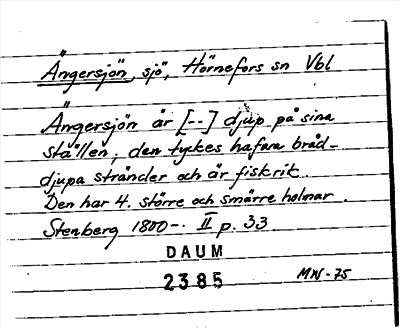 Ängersjön, sjö, Hörnefors sn Vbl
Ängersjön är [--] djup på sina
ställen, den tyckes hafva bråd-
djupa stränder och är fiskrik.
Den har 4. större och smärre holmar.
Stenberg 1800-. II p. 33
DAUM
2385
MW-75